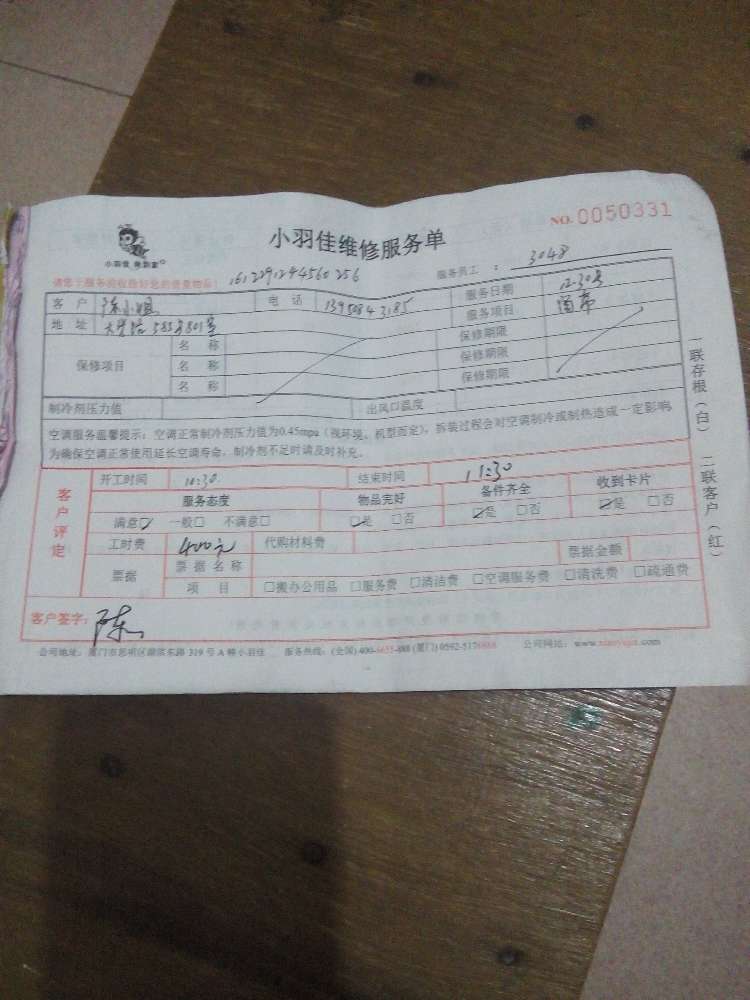 小羽佳 来到家
小羽佳维修服务单
NO. 0050331
请您于服务前收放好您的贵重物品!
1612291244560256
服务员工: 3048
客户 陈小姐 电话 13950843185 服务日期 12.30号
地址 服务项目
保修项目 名称 保修期限
名称 保修期限
名称 保修期限
制冷剂压力值 出风口温度
空调服务温馨提示:空调正常制冷剂压力值为0.45mpa(视环境、机型而定),拆装过程会对空调制冷或制热造成一定影响,
为确保空调正常使用延长空调寿命,制冷剂不足时请及时补充。
客户评定
开工时间 10:30. 结束时间 11:30
服务态度 物品完好 备件齐全 收到卡片
满意☑ 一般□ 不满意□ ☑是 □否 ☑是 □否 ☑是 □否
工时费 400元 代购材料费
票据 票据名称 票据金额
项目 □搬办公用品 □服务费 □清洁费 □空调服务费 □清洗费 □疏通费
客户签字: 陈
公司地址:厦门市思明区湖滨东路 319 号 A 幢小羽佳 服务热线:(全国) 400-6655-488 (厦门) 0592-5176868 公司网站:www.xiaoyujia.com
联存根(白) 二联客户(红)